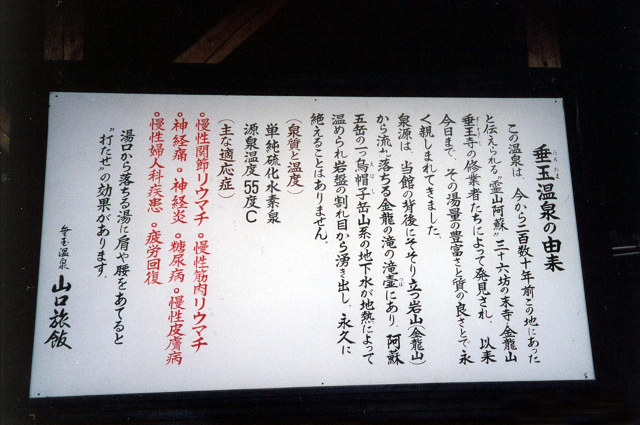 垂玉温泉の由来
この温泉は、今から二百数十年前この地にあった
と伝えられる"霊山阿蘇"三十六坊の末寺・金龍山
垂玉寺の修業者たちによって発見され、以来
今日まで、その湯量の豊富さと質の良さとで永
く親しまれてきました。
泉源は、当館の背後にそそり立つ岩山(金龍山)
から流れ落ちる金龍の滝の滝壷にあり、阿蘇
五岳の一つ烏帽子岳山系の地下水が地熱によって
温められ岩盤の割れ目から湧き出し、永久に
絶えることはありません。
(泉質と温度)
単純硫化水素泉
源泉温度 55度C
(主な適応症)
○慢性関節リウマチ ○慢性筋肉リウマチ
○神経痛 ○神経炎 ○糖尿病 ○慢性皮膚病
○慢性婦人科疾患 ○疲労回復
湯口から落ちる湯に肩や腰をあてると
"打たせ"の効果があります。
垂玉温泉 山口旅館